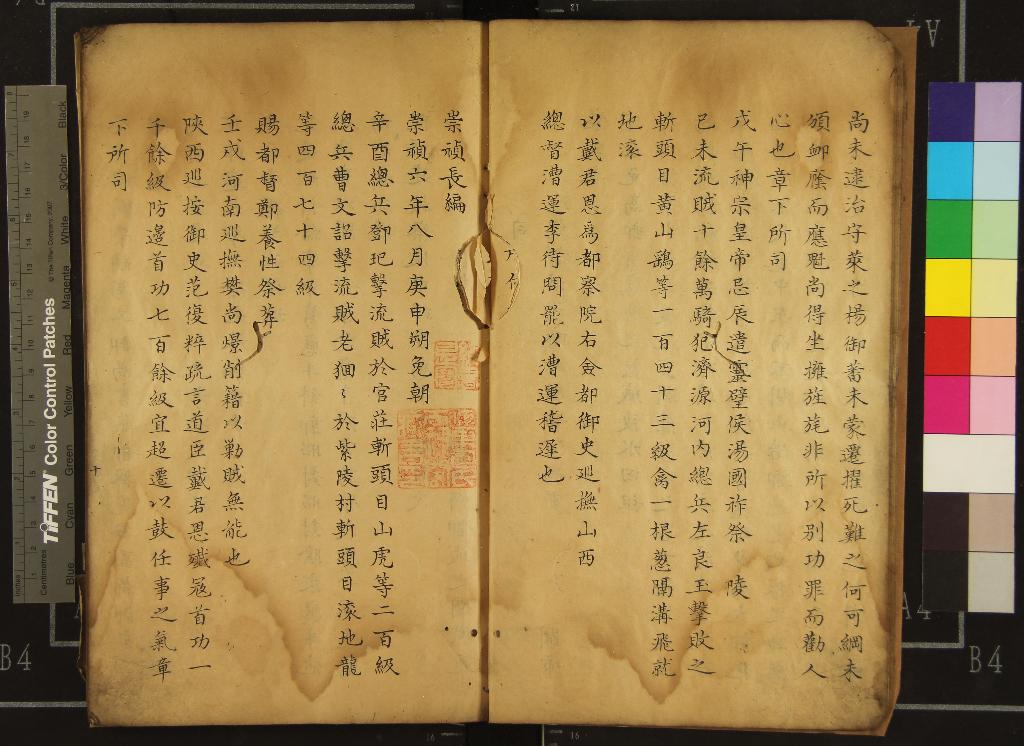 尚未逮治守萊之揚御蓄未蒙遷擢死難之何可綱未
頒卹廕而應魁尚得坐擁旌旄非所以别功罪而勸人
心也章下所司
戊午神宗皇帝忌辰遣靈璧侯湯國祚祭 陵
己未流賊十餘萬騎犯濟源河内總兵左良玉擊敗之
斬頭目黄山鷂等一百四十三級禽一根葱隔溝飛就
地滚
以戴君恩為都察院右僉都御史廵撫山西
總督漕運李待問罷以漕運稽遲也
崇禎長編
崇禎六年八月庚申朔免朝
辛酉總兵鄧玘擊流賊於官莊斬頭目山虎等二百級
總兵曹文詔擊流賊老狪〻於紫陵村斬頭目滚地龍
等四百七十四級
賜都督鄭養性祭葬
壬戌河南廵撫樊尚燝削籍以勦賊無能也
陝西廵按御史范復粹疏言道臣戴君恩殱寇首功一
千餘級防邊首功七百餘級宜超遷以鼓任事之氣章
下所司
TIFFEN Color Control Patches
© The Tiffen Company, 2007
Inches
Centimetres
Blue
Cyan
Green
Yellow
Red
Magenta
White
3/Color
Black
A4
B4
A4
B4